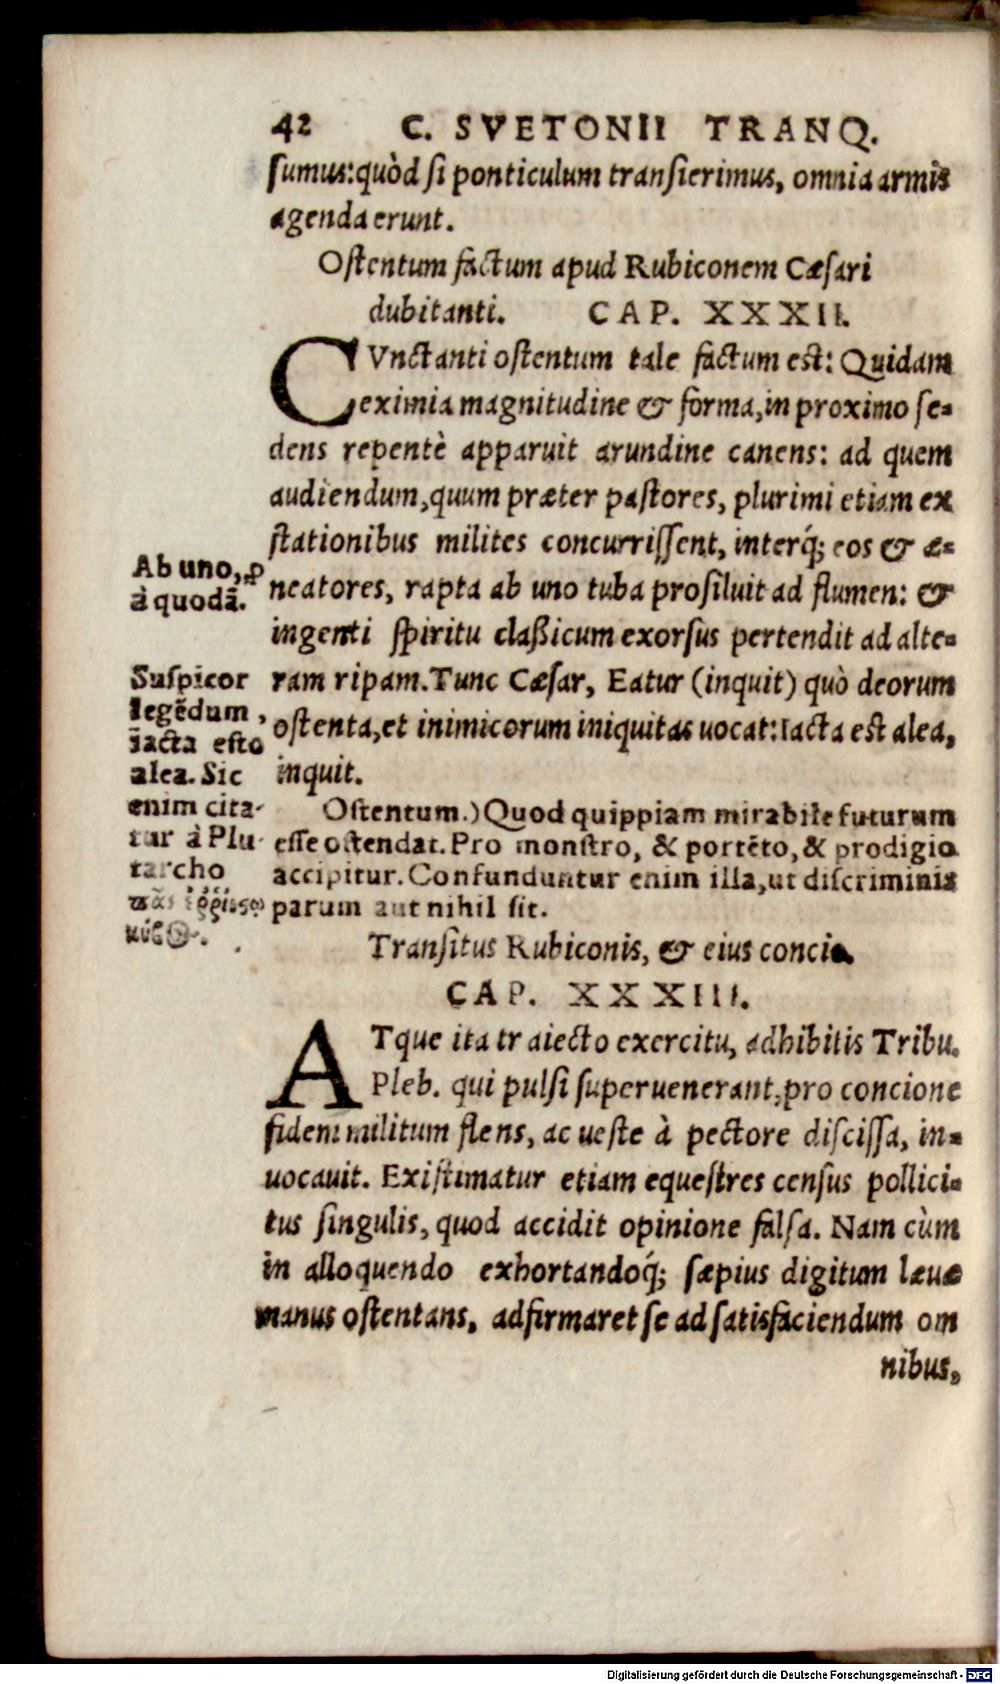 42 C. SVETONII TRANQ.
sumus: quòd si ponticulum transierimus, omnia armis
agenda erunt.
Ostentum factum apud Rubiconem Cæsari
dubitanti. CAP. XXXII.
CVnctanti ostentum tale factum est: Quidam
eximia magnitudine & forma, in proximo se-
dens repentè apparuit arundine canens: ad quem
audiendum, quum præter pastores, plurimi etiam ex
stationibus milites concurrissent, interq́; eos & æ-
neatores, rapta ab uno tuba prosiluit ad flumen: &
ingenti spiritu claßicum exorsus pertendit ad alte-
ram ripam. Tunc Cæsar, Eatur (inquit) quò deorum
ostenta, et inimicorum iniquitas uocat: Iacta est alea,
inquit.
Ab uno, ꝓ
à quodã.
Suspicor
legẽdum,
iacta esto
alea. Sic
enim cita-
tur à Plu-
tarcho
Ostentum.) Quod quippiam mirabile futurum
esse ostendat. Pro monstro, & portẽto, & prodigio
accipitur. Confunduntur enim illa, ut discriminis
parum aut nihil sit.
Transitus Rubiconis, & eius concio.
CAP. XXXIII.
ATque ita traiecto exercitu, adhibitis Tribu.
Pleb. qui pulsi superuenerant, pro concione
fidem militum flens, ac ueste à pectore discissa, in-
uocauit. Existimatur etiam equestres census pollici-
tus singulis, quod accidit opinione falsa. Nam cùm
in alloquendo exhortandoq́; sæpius digitum læuæ
manus ostentans, adfirmaret se ad satisfaciendum om
nibus,
Digitalisierung gefördert durch die Deutsche Forschungsgemeinschaft - DFG